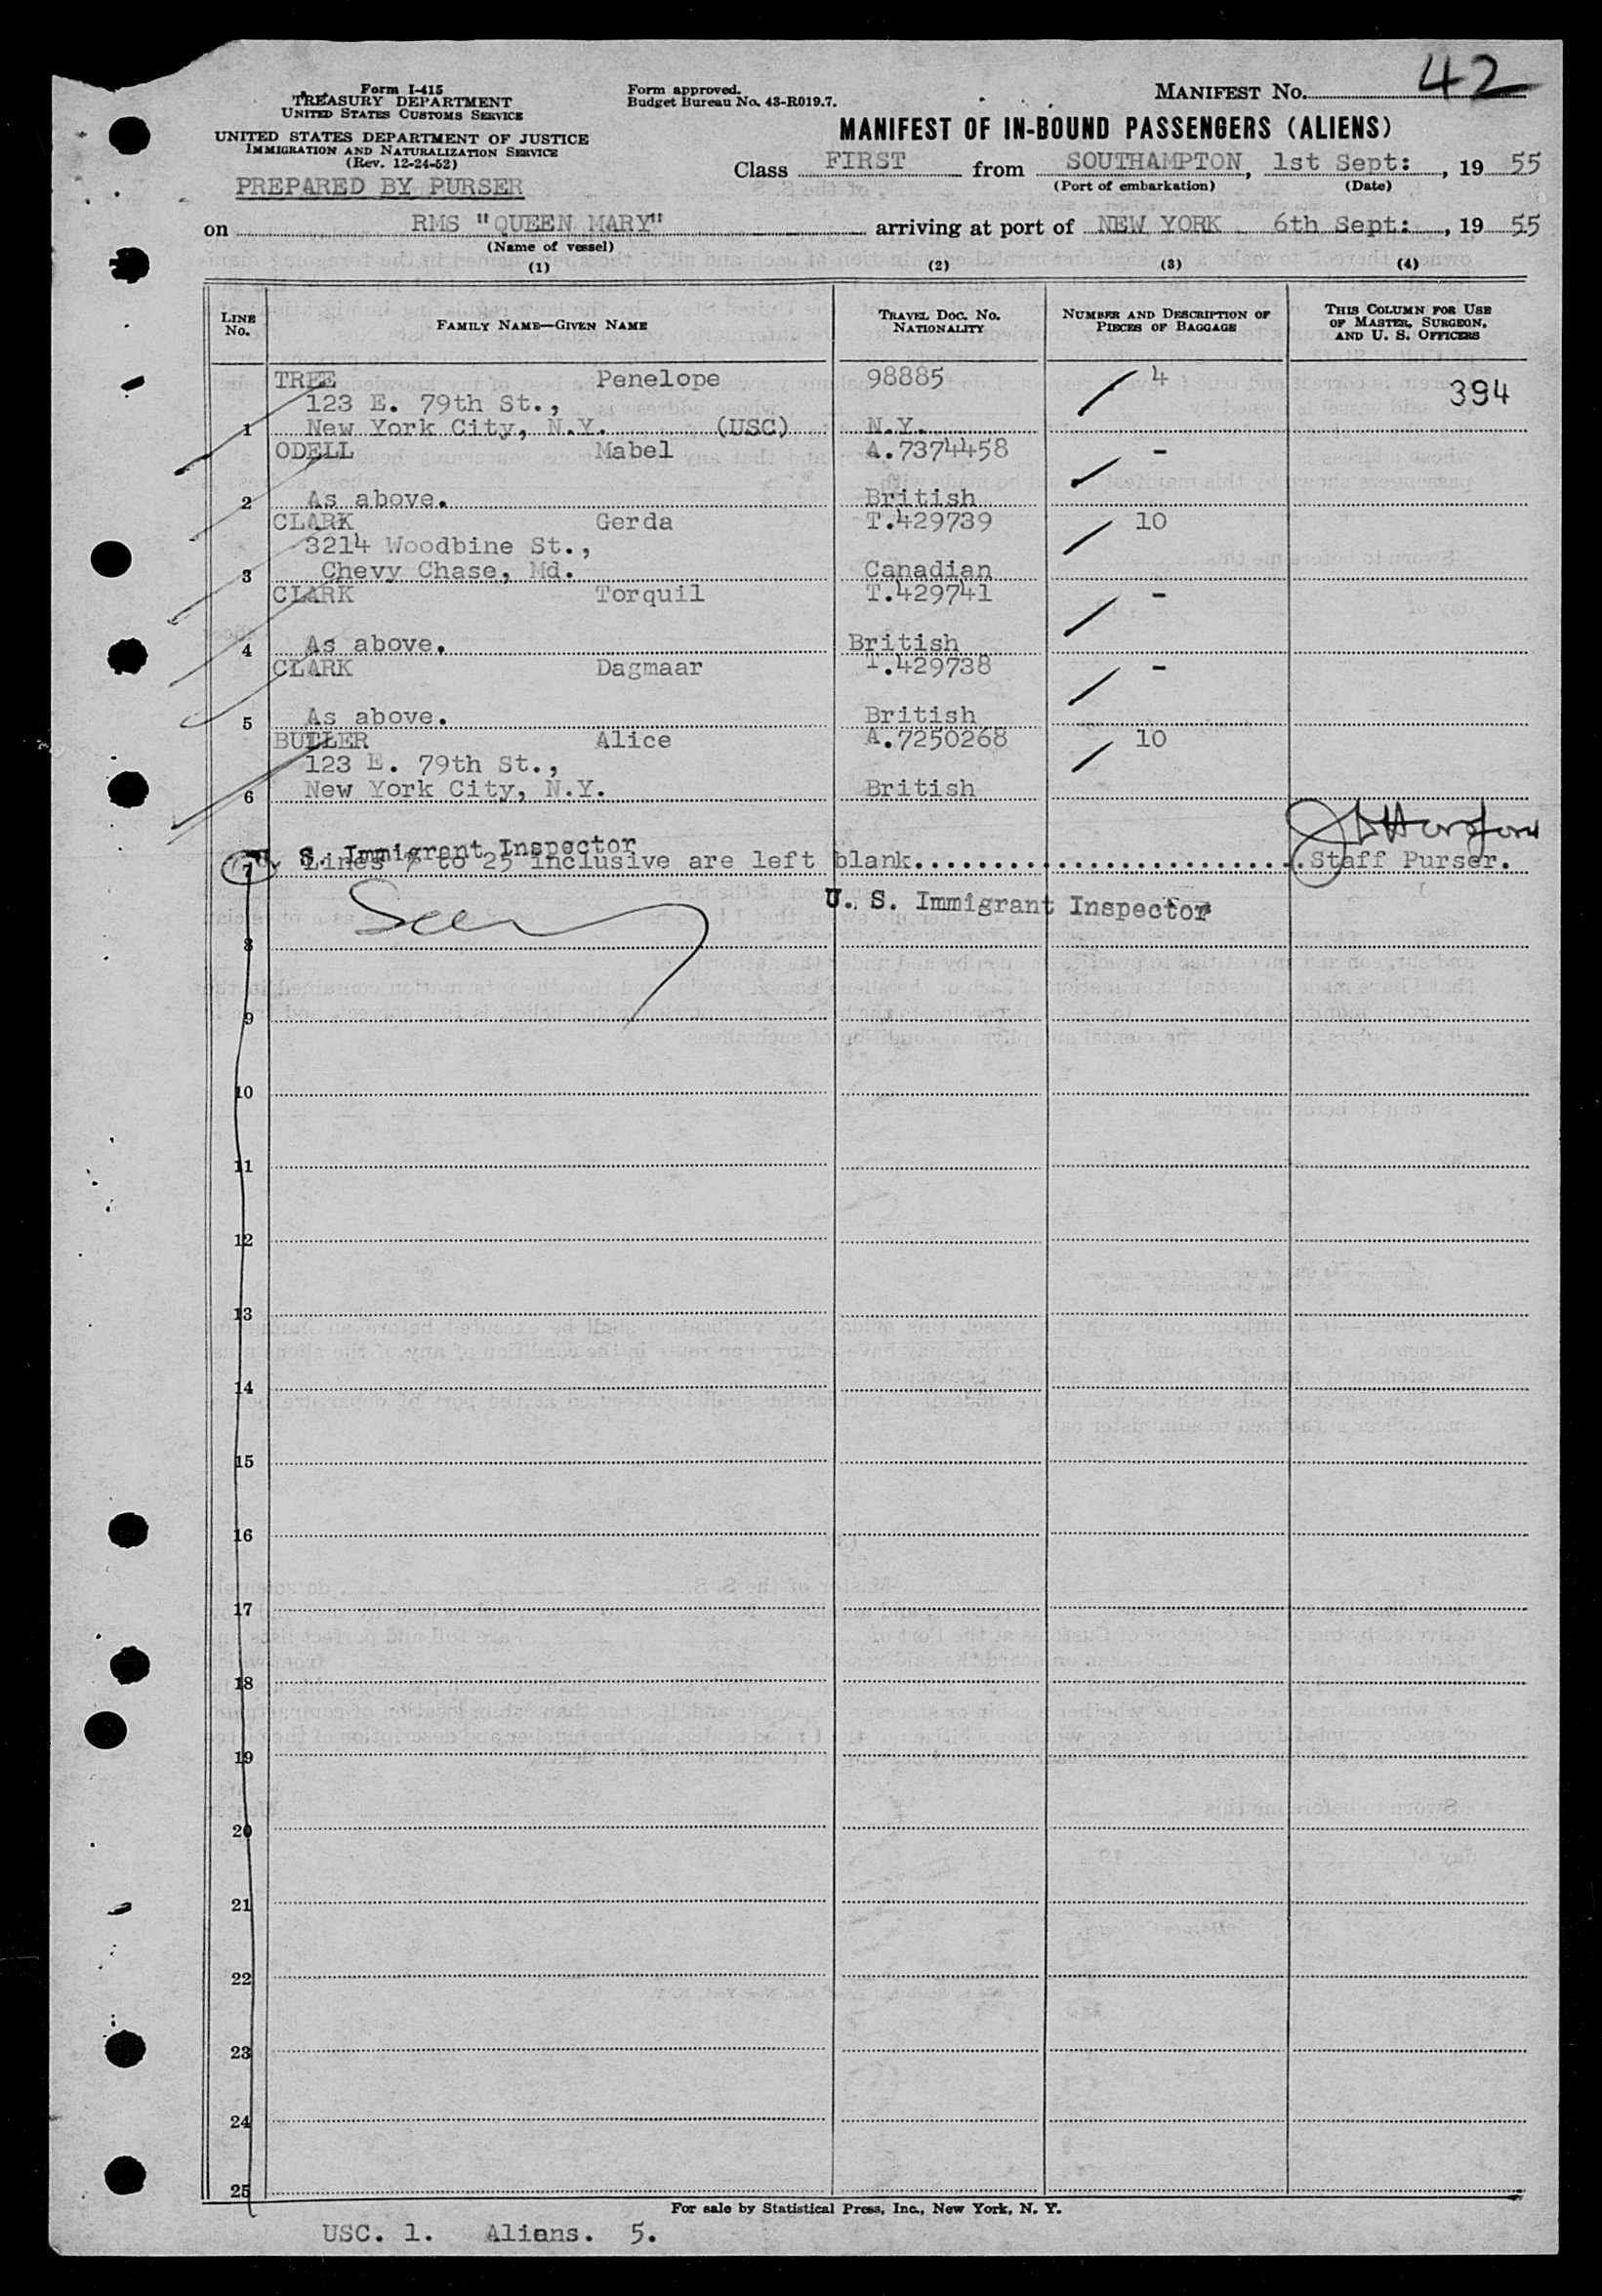 Form I-415
TREASURY DEPARTMENT
UNITED STATES CUSTOMS SERVICE
UNITED STATES DEPARTMENT OF JUSTICE
IMMIGRATION AND NATURALIZATION SERVICE
(Rev. 12-24-52)
PREPARED BY PURSER
Form approved.
Budget Bureau No. 43-R019.7.
MANIFEST No. 42
MANIFEST OF IN-BOUND PASSENGERS (ALIENS)
Class FIRST from SOUTHAMPTON, 1st Sept:, 19 55
(Port of embarkation) (Date)
on RMS "QUEEN MARY" arriving at port of NEW YORK 6th Sept:, 19 55
(Name of vessel)
(1) (2) (3) (4)
LINE No. FAMILY NAME—GIVEN NAME TRAVEL DOC. No. NATIONALITY NUMBER AND DESCRIPTION OF PIECES OF BAGGAGE THIS COLUMN FOR USE OF MASTER, SURGEON, AND U. S. OFFICERS
TREE Penelope 98885 4 394
123 E. 79th St.,
1 New York City, N.Y. (USC) N.Y.
ODELL Mabel A.7374458 -
2 As above. British
CLARK Gerda T.429739 10
3214 Woodbine St.,
3 Chevy Chase, Md. Canadian
CLARK Torquil T.429741 -
4 As above. British
CLARK Dagmaar T.429738 -
5 As above. British
BUTLER Alice A.7250268 10
123 E. 79th St.,
6 New York City, N.Y. British
S. Immigrant Inspector
7 Lines 7 to 25 inclusive are left blank. Staff Purser.
U. S. Immigrant Inspector
8
9
10
11
12
13
14
15
16
17
18
19
20
21
22
23
24
25
For sale by Statistical Press, Inc., New York, N. Y.
USC. 1. Aliens. 5.